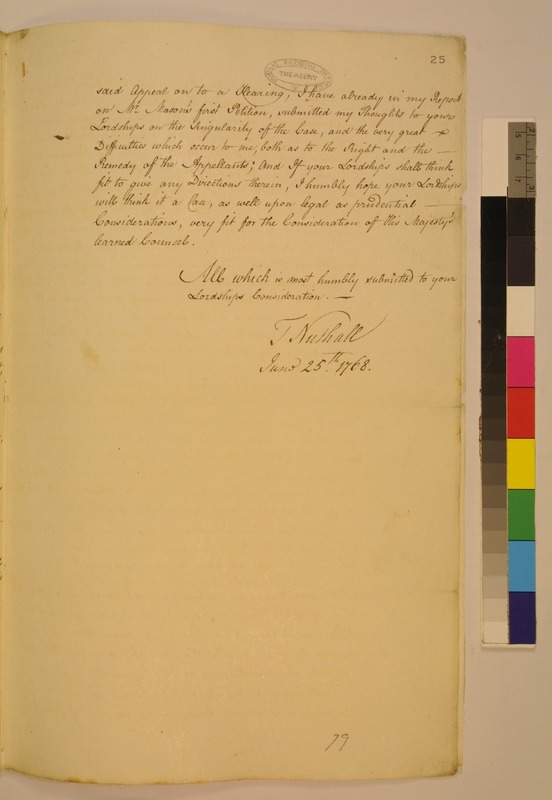 25
PUBLIC RECORD OFFICE
TREASURY
said Appeal on to a Hearing, I have already in my Report
on Mr. Mason's first Petition, submitted my Thoughts to your
Lordships on the Singularity of the Case, and the very great
Difficulties which occur to me, both as to the Right and the —
Remedy of the Appellants; And If your Lordships shall think
fit to give any Directions therein, I humbly hope your Lordships
will think it a Case, as well upon legal as prudential —
Considerations, very fit for the Consideration of His Majesty's
learned Counsel.
All which is most humbly submitted to your
Lordships Consideration. —
T Nuthall
June 25.th 1768.
79